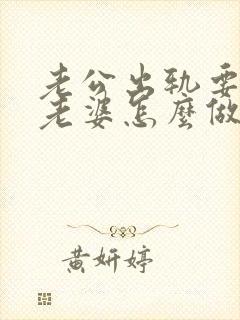 老公出轨要
老婆怎麼做
黄妍婷